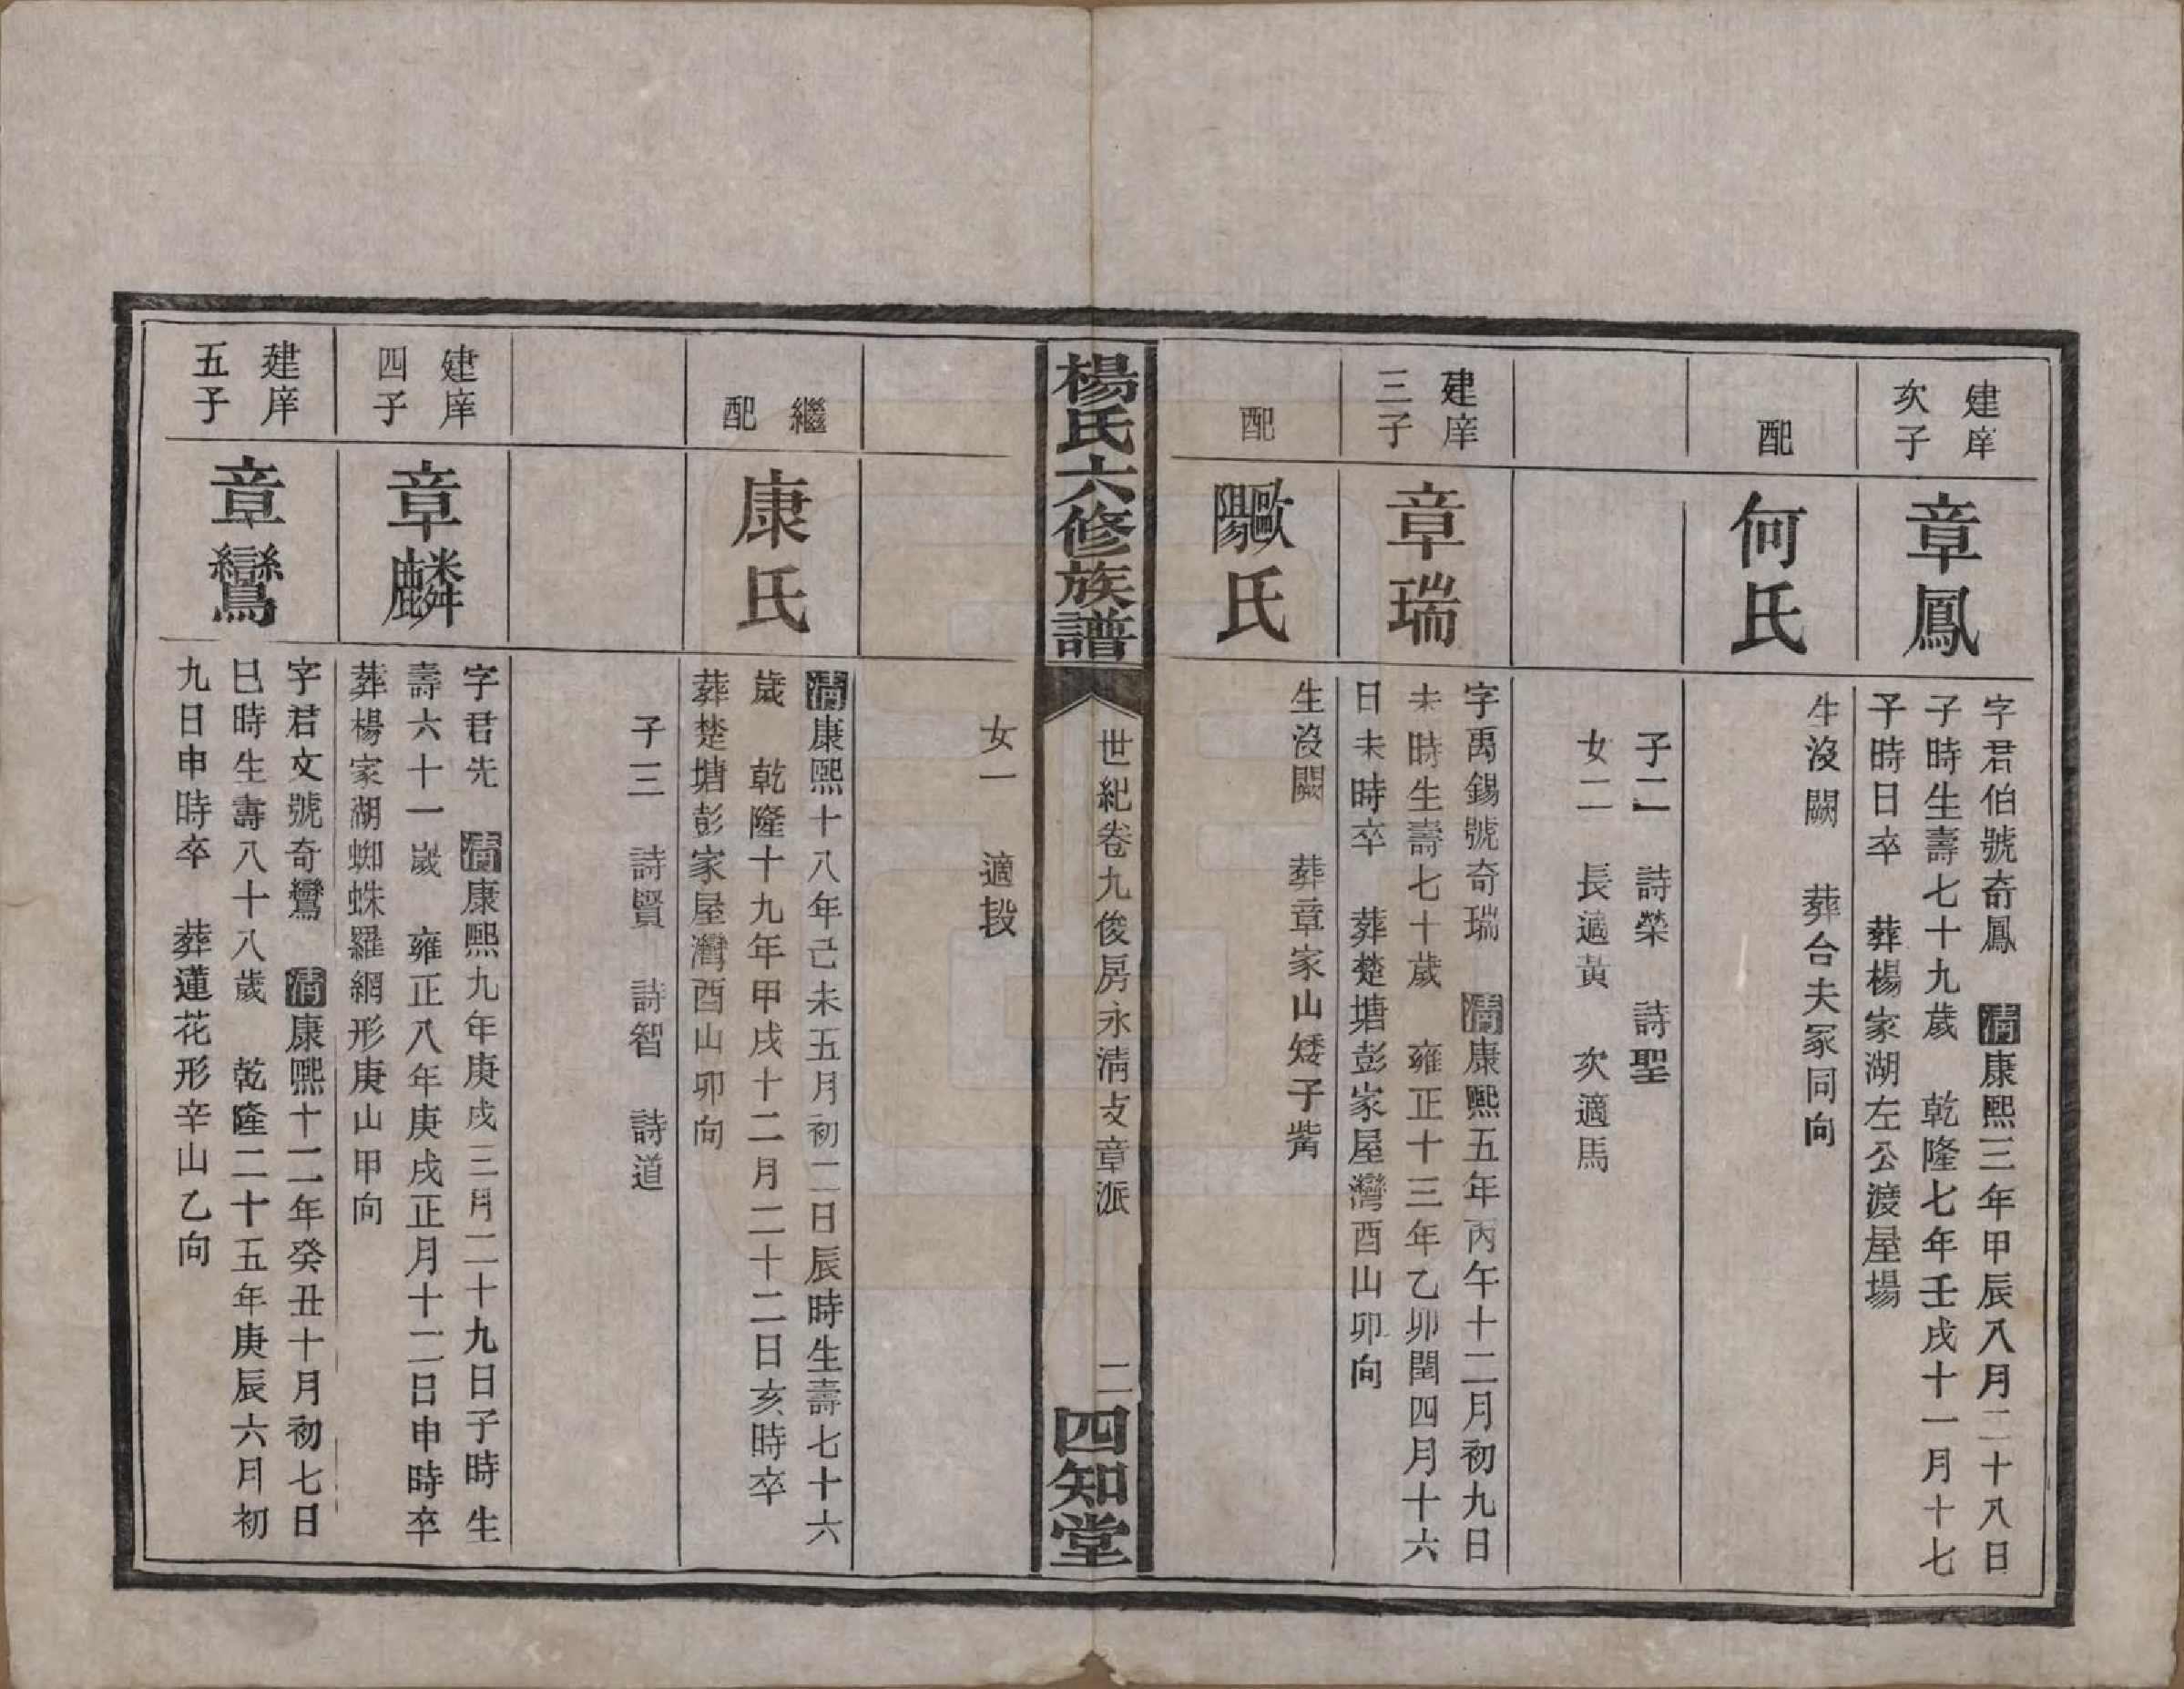 建庠
次子
章鳳
字君伯號奇鳳　清康熙三年甲辰八月二十八日
子時生壽七十九歲　乾隆七年壬戌十一月十七
子時日卒　葬楊家湖左公渡屋場
配
何氏
生沒闕　葬台夫冢同向
子二　詩榮　詩聖
女二　長適黃　次適馬
建庠
三子
章瑞
字禹錫號奇瑞　清康熙五年丙午十二月初九日
未時生壽七十歲　雍正十三年乙卯閏四月十六
日未時卒　葬楚塘彭家屋灣酉山卯向
配
歐陽氏
生沒闕　葬章家山矮子觜
楊氏六修族譜
世紀卷九俊房永清支章派
二
四知堂
女一　適段
繼
配
康氏
清康熙十八年己未五月初二日辰時生壽七十六
歲　乾隆十九年甲戌十二月二十二日亥時卒
葬楚塘彭家屋灣酉山卯向
子三　詩賢　詩智　詩道
建庠
四子
章麟
字君先　清康熙九年庚戌三月二十九日子時生
壽六十一歲　雍正八年庚戌正月十二日申時卒
葬楊家湖蜘蛛羅網形庚山甲向
建庠
五子
章鸞
字君文號奇鸞　清康熙十二年癸丑十月初七日
巳時生壽八十八歲　乾隆二十五年庚辰六月初
九日申時卒　葬蓮花形辛山乙向